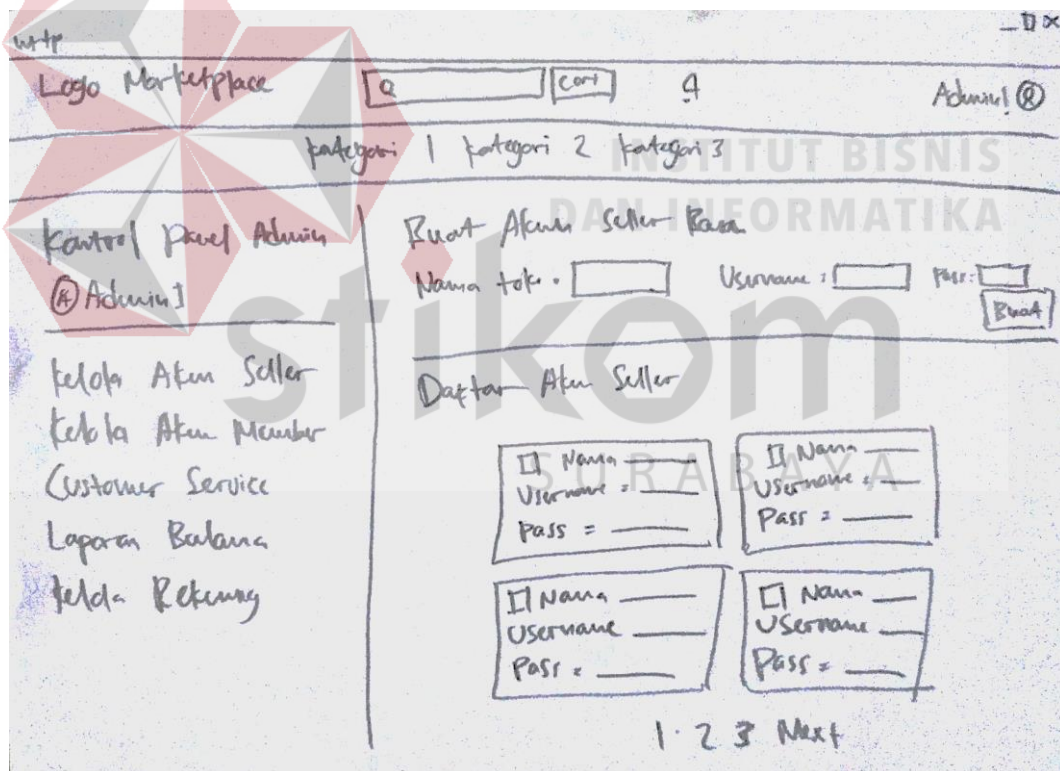 http
Logo Marketplace Cari Admin1
Kategori 1 Kategori 2 Kategori 3
INSTITUT BISNIS
DAN INFORMATIKA
stikom
SURABAYA
Kontrol Panel Admin
Admin1
Kelola Akun Seller
Kelola Akun Member
Customer Service
Laporan
Kelola Rekening
Buat Akun Seller Baru
Nama toko : Username : Pass :
Buat
Daftar Akun Seller
Nama
Username =
Pass =
Nama
Username =
Pass =
Nama
Username
Pass =
Nama
Username
Pass =
1 2 3 Next